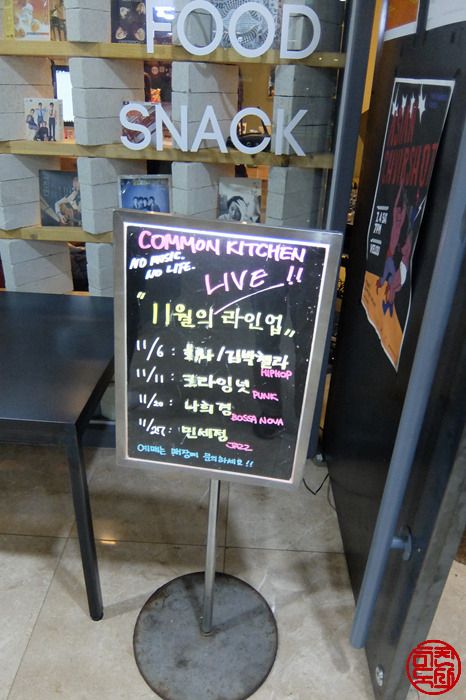 FOOD
SNACK
COMMON KITCHEN
NO MUSIC.
NO LIFE.
LIVE !!
"11월의 라인업"
11/6 : /김박첼라
HIPHOP
11/11 : 크라잉넛
PUNK
11/20 : 나희경
BOSSA NOVA
11/25 : 민세정
JAZZ
예매는 매장에 문의하세요!!